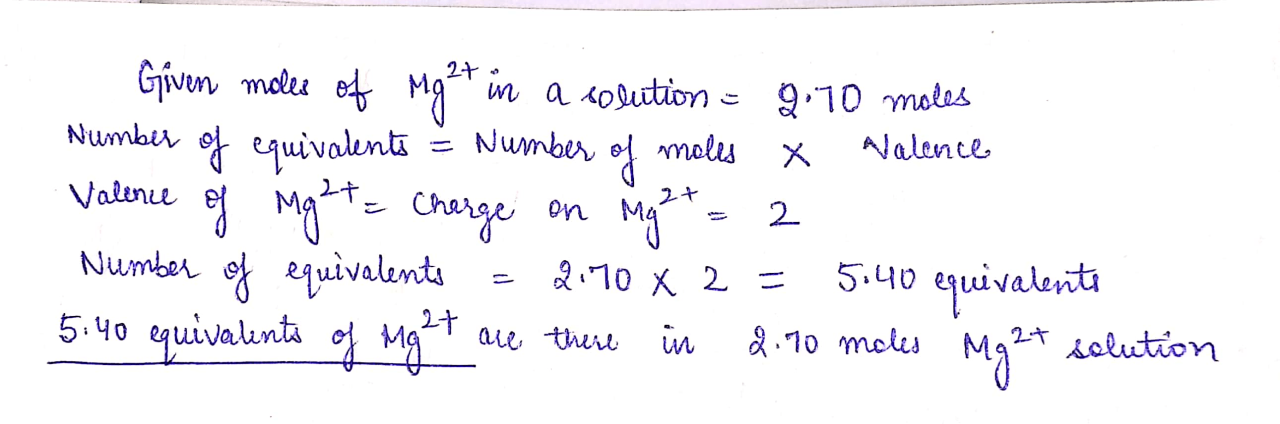 Given moles of Mg²⁺ in a solution = 2.70 moles
Number of equivalents = Number of moles × Valence
Valence of Mg²⁺ = Charge on Mg²⁺ = 2
Number of equivalents = 2.70 × 2 = 5.40 equivalents
5.40 equivalents of Mg²⁺ are there in 2.70 moles Mg²⁺ solution